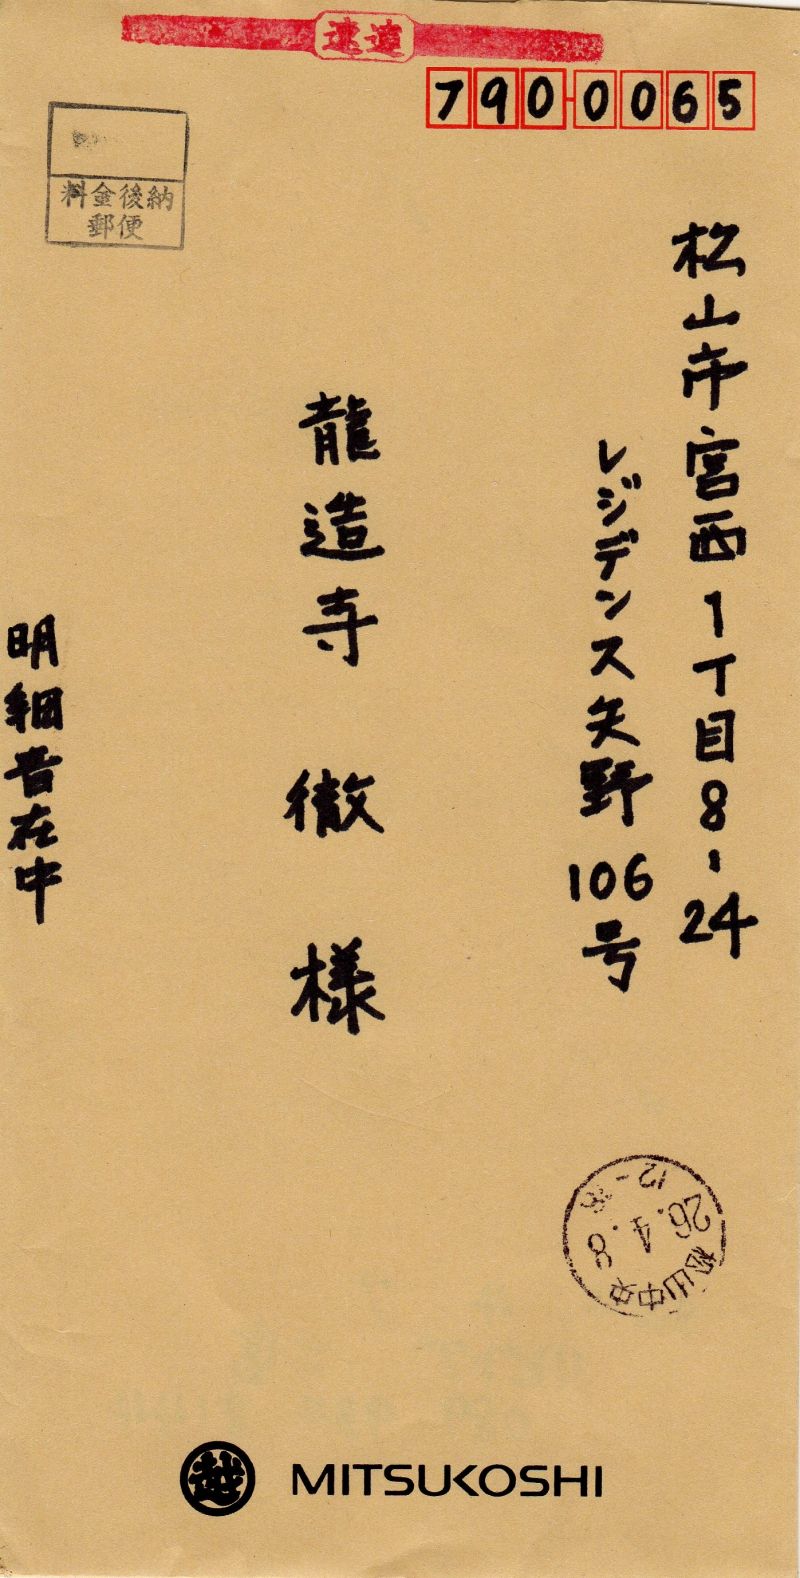 速達
790-0065
料金後納
郵便
松山市宮西1丁目8-24
レジデンス矢野106号
龍造寺 徹 様
明細書在中
12-18
26.4.8
松山中央
越 MITSUKOSHI